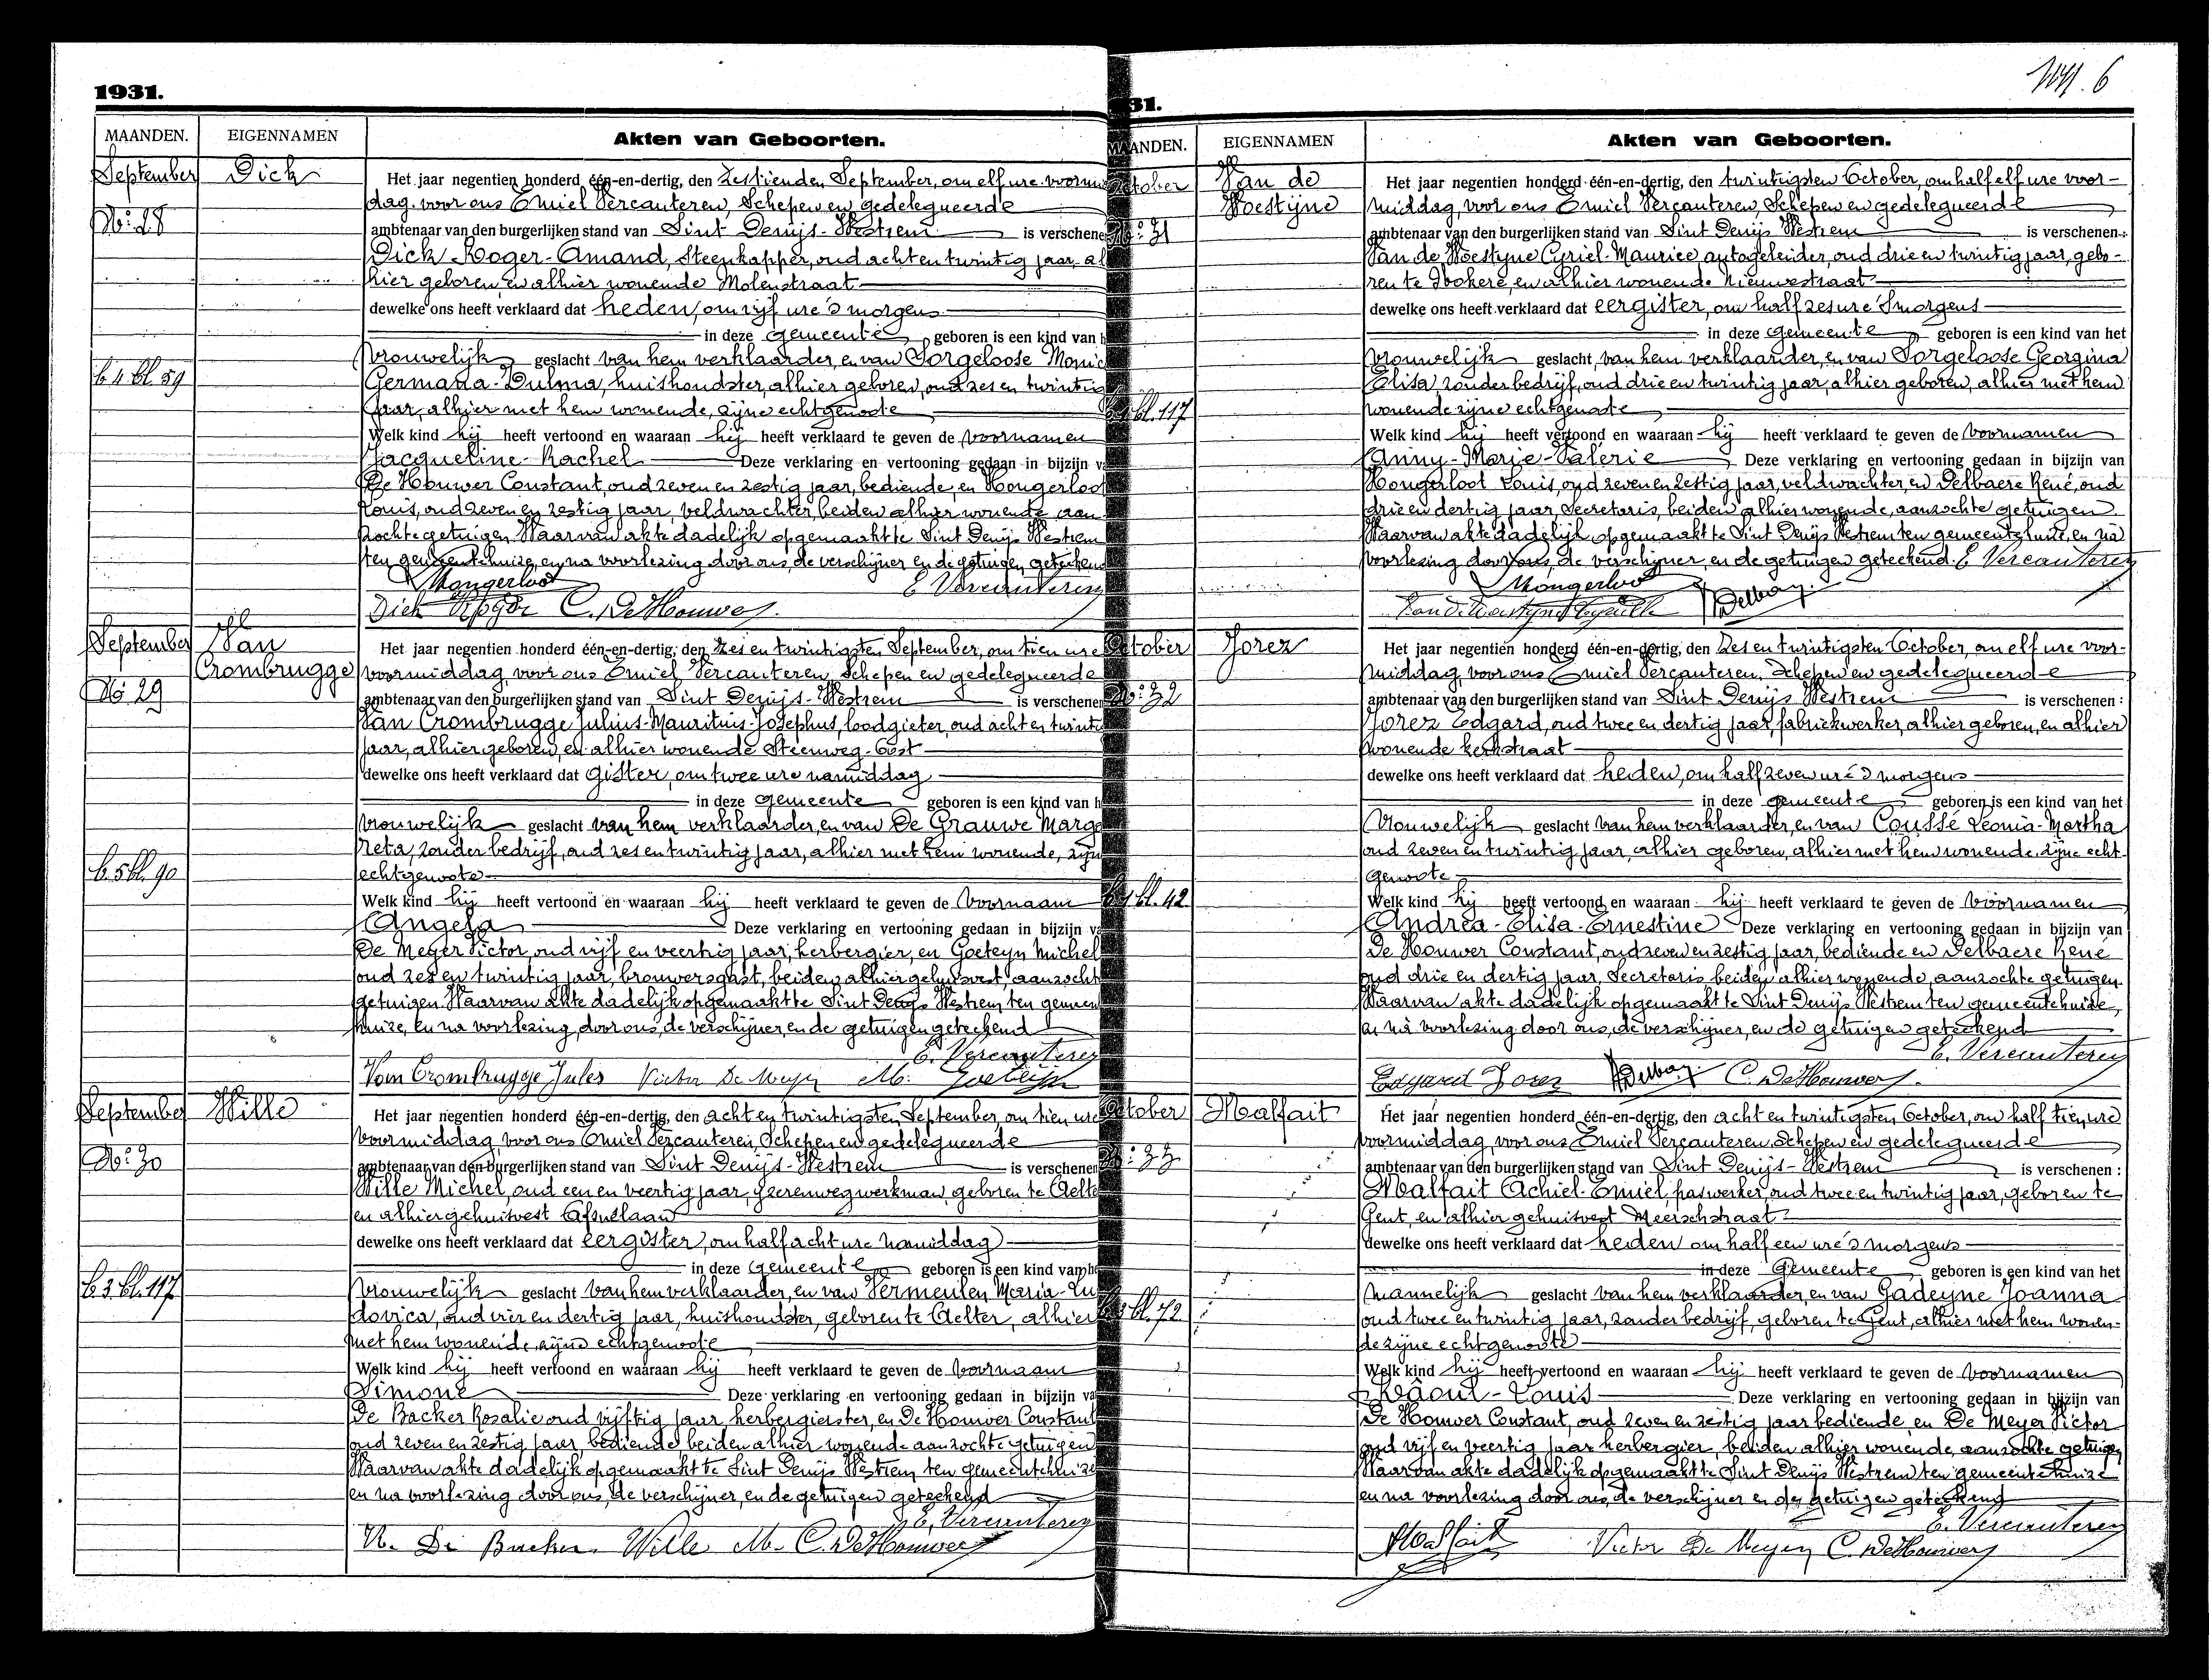 1931.
MAANDEN. EIGENNAMEN Akten van Geboorten.
September Dick Het jaar negentien honderd één-en-dertig, den Zestienden September, om elf ure voormid
dag voor ons Emiel Vercauteren, Schepen en gedelegueerde
No: 28 ambtenaar van den burgerlijken stand van Sint Denijs-Westrem is verschene
Dick Roger-Amand, Steenkapper, oud acht en twintig jaar, al
hier geboren, en alhier wonende Molenstraat
dewelke ons heeft verklaard dat heden, om vijf ure 's morgens
in deze gemeente geboren is een kind van h
b 4 bl 59 vrouwelijk geslacht van hem verklaarder, en van Sorgeloose Monic
Germana-Dulma, huishoudster, alhier geboren, oud zes en twintig
jaar, alhier met hem wonende, zijne echtgenoote
Welk kind hij heeft vertoond en waaraan hij heeft verklaard te geven de voornamen
Jacqueline-Rachel Deze verklaring en vertooning gedaan in bijzijn v
De Houwer Constant, oud zeven en zestig jaar, bediende, en Hongerloo
Louis, oud zeven en zestig jaar, veldwachter, beiden alhier wonende aan
zochte getuigen. Waarvan akte dadelijk opgemaakt te Sint Denijs Westrem
ten gemeentehuize, en na voorlezing door ons, de verschijner en de getuigen geteekend
Hongerloot E Vercauteren
Dick Roger C. DeHouwer
September Van Het jaar negentien honderd één-en-dertig, den Zes en twintigsten September, om tien ure
Crombrugge voormiddag voor ons Emiel Vercauteren, Schepen en gedelegueerde
No 29 ambtenaar van den burgerlijken stand van Sint Denijs-Westrem is verschenen
Van Crombrugge Julius-Mauritius-Josephus, loodgieter, oud acht en twinti
jaar, alhier geboren, en alhier wonende Steenweg-Oost
dewelke ons heeft verklaard dat gister, om twee ure namiddag
in deze gemeente geboren is een kind van h
vrouwelijk geslacht van hem verklaarder, en van De Grauwe Marga
reta, zonder bedrijf, oud zes en twintig jaar, alhier met hem wonende, zijn
b. 5 bl. 90 echtgenoote
Welk kind hij heeft vertoond en waaraan hij heeft verklaard te geven de voornaam
Angela Deze verklaring en vertooning gedaan in bijzijn v
De Meyer Victor, oud vijf en veertig jaar, herbergier, en Goeteyn Michel
oud zes en twintig jaar, brouwersgast, beiden alhier gehuisvest, aanzocht
getuigen. Waarvan akte dadelijk opgemaakt te Sint Denijs Westrem ten gemeen
huize, en na voorlezing, door ons, de verschijner, en de getuigen geteekend
E. Vercauteren
Van Crombrugge Jules Victor De Meyer M. Goeteyn
September Wille Het jaar negentien honderd één-en-dertig, den acht en twintigsten September, om tien ure
voormiddag voor ons Emiel Vercauteren, Schepen en gedelegueerde
No: 30 ambtenaar van den burgerlijken stand van Sint Denijs-Westrem is verschenen
Wille Michel, oud een en veertig jaar, ijzerenwegwerkman, geboren te Aelte
en alhier gehuisvest Afsnelaan
dewelke ons heeft verklaard dat eergister, om half acht ure namiddag
in deze gemeente geboren is een kind van he
b 3 bl. 117 vrouwelijk geslacht van hem verklaarder, en van Vermeulen Maria-Lu
dovica, oud vier en dertig jaar, huishoudster, geboren te Aelter, alhier
met hem wonende, zijne echtgenoote
Welk kind hij heeft vertoond en waaraan hij heeft verklaard te geven de voornaam
Simone Deze verklaring en vertooning gedaan in bijzijn va
De Backer Rosalie oud vijftig jaar herbergierster, en De Houwer Constant
oud zeven en zestig jaar, bediende beiden alhier wonende aanzochte getuigen
Waarvan akte dadelijk opgemaakt te Sint Denijs Westrem ten gemeentehuize
en na voorlezing door ons, de verschijner, en de getuigen geteekend
E. Vercauteren
R. De Backer Wille M. C. DeHouwer
6
31.
ANDEN. EIGENNAMEN Akten van Geboorten.
October Van de Het jaar negentien honderd één-en-dertig, den twintigsten October, om half elf ure voor-
Woestijne middag, voor ons Emiel Vercauteren, Schepen en gedelegueerde
No: 31 ambtenaar van den burgerlijken stand van Sint Denijs Westrem is verschenen:
Van de Woestyne Cyriel-Maurice autogeleider, oud drie en twintig jaar, gebo-
ren te Nokere, en alhier wonende Nieuwstraat
dewelke ons heeft verklaard dat eergister, om half zes ure 's morgens
in deze gemeente geboren is een kind van het
vrouwelijk geslacht, van hem verklaarder, en van Sorgeloose Georgina
Elisa, zonder bedrijf, oud drie en twintig jaar, alhier geboren, alhier met hem
bl. 117 wonende zijne echtgenoote
Welk kind hij heeft vertoond en waaraan hij heeft verklaard te geven de voornamen
Anny-Marie-Valerie Deze verklaring en vertooning gedaan in bijzijn van
Hongerloot Louis, oud zeven en zestig jaar, veldwachter, en Delbaere René, oud
drie en dertig jaar, Secretaris, beiden alhier wonende, aanzochte getuigen.
Waarvan akte dadelijk opgemaakt te Sint Denijs Westrem ten gemeentehuize, en na
voorlezing door ons, de verschijner, en de getuigen geteekend. E Vercauteren
Hongerloot
Van de Woestyne Cyrille Delbaere
October Jorez Het jaar negentien honderd één-en-dertig, den Zes en twintigsten October, om elf ure voor-
middag voor ons Emiel Vercauteren, Schepen en gedelegueerde
No: 32 ambtenaar van den burgerlijken stand van Sint Denijs Westrem is verschenen:
Jorez Edgard, oud twee en dertig jaar, fabriekwerker, alhier geboren, en alhier
wonende Kerkstraat
dewelke ons heeft verklaard dat heden, om half zeven ure 's morgens
in deze gemeente geboren is een kind van het
Vrouwelijk geslacht van hem verklaarder, en van Coussé Leonia-Martha
oud zeven en twintig jaar, alhier geboren, alhier met hem wonende, zijne echt-
genoote
bl. 42 Welk kind hij heeft vertoond en waaraan hij heeft verklaard te geven de voornamen
Andrea-Elisa-Ernestine Deze verklaring en vertooning gedaan in bijzijn van
De Houwer Constant, oud zeven en zestig jaar, bediende en Delbaere René
oud drie en dertig jaar, Secretaris, beiden alhier wonende, aanzochte getuigen.
Waarvan akte dadelijk opgemaakt te Sint Denijs Westrem ten gemeentehuize,
en na voorlezing door ons, de verschijner, en de getuigen geteekend
E. Vercauteren
Edgard Jorez Delbaere C. DeHouwer
October Malfait Het jaar negentien honderd één-en-dertig, den acht en twintigsten October, om half tien ure
voormiddag, voor ons Emiel Vercauteren, Schepen en gedelegueerde
No: 33 ambtenaar van den burgerlijken stand van Sint Denijs-Westrem is verschenen:
Malfait Achiel-Emiel, paswerker, oud twee en twintig jaar, geboren te
Gent, en alhier gehuisvest Meerschstraat
dewelke ons heeft verklaard dat heden om half een ure 's morgens
in deze Gemeente geboren is een kind van het
mannelijk geslacht van hem verklaarder, en van Gadeyne Joanna
bl. 72 oud twee en twintig jaar, zonder bedrijf, geboren te Gent, alhier met hem wonen-
de zijne echtgenoote
Welk kind hij heeft vertoond en waaraan hij heeft verklaard te geven de voornamen
Raoul-Louis Deze verklaring en vertooning gedaan in bijzijn van
De Houwer Constant, oud zeven en zestig jaar bediende en De Meyer Victor
oud vijf en veertig jaar herbergier, beiden alhier wonende, aanzochte getuigen
Waarvan akte dadelijk opgemaakt te Sint Denijs Westrem ten gemeentehuize
en na voorlezing door ons, de verschijner en de getuigen geteekend
E. Vercauteren
Malfait Victor De Meyer C. DeHouwer